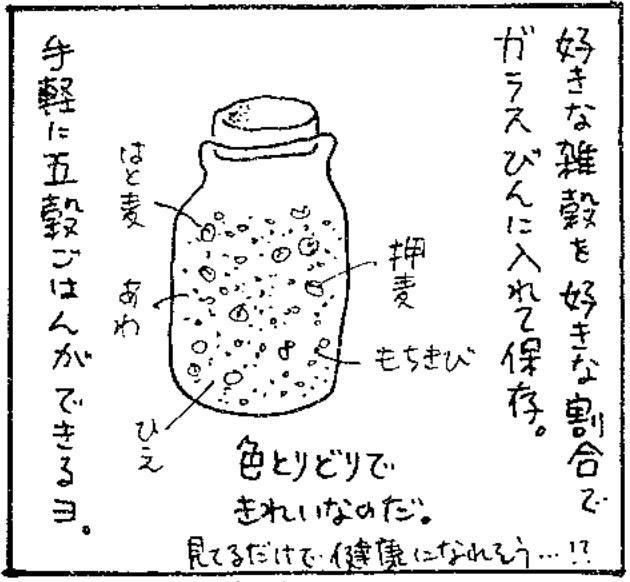 好きな雑穀を好きな割合で
ガラスびんに入れて保存。
はと麦
あわ
ひえ
押麦
もちきび
色とりどりで
きれいなのだ。
見てるだけで健康になれそう…!?
手軽に五穀ごはんができるヨ。